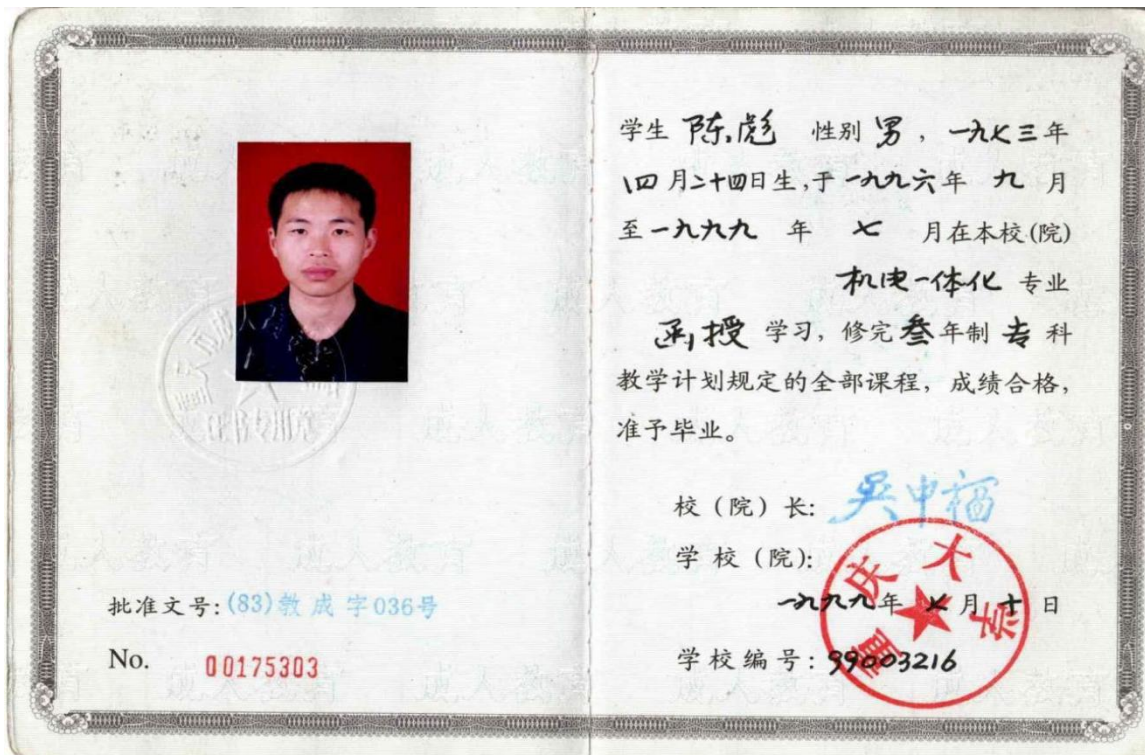 批准文号:(83)教成字036号
No. 00175303
证书专用章
学生 陈彪 性别 男，一九七三年
四月二十四日生,于一九九六年 九 月
至一九九九 年 七 月在本校(院)
机电一体化 专业
函授 学习，修完叁年制 专 科
教学计划规定的全部课程，成绩合格，
准予毕业。
校（院）长: 吴中福
学校（院）:
重庆大学
一九九九年 七月 十 日
学校编号: 99003216
成人教育